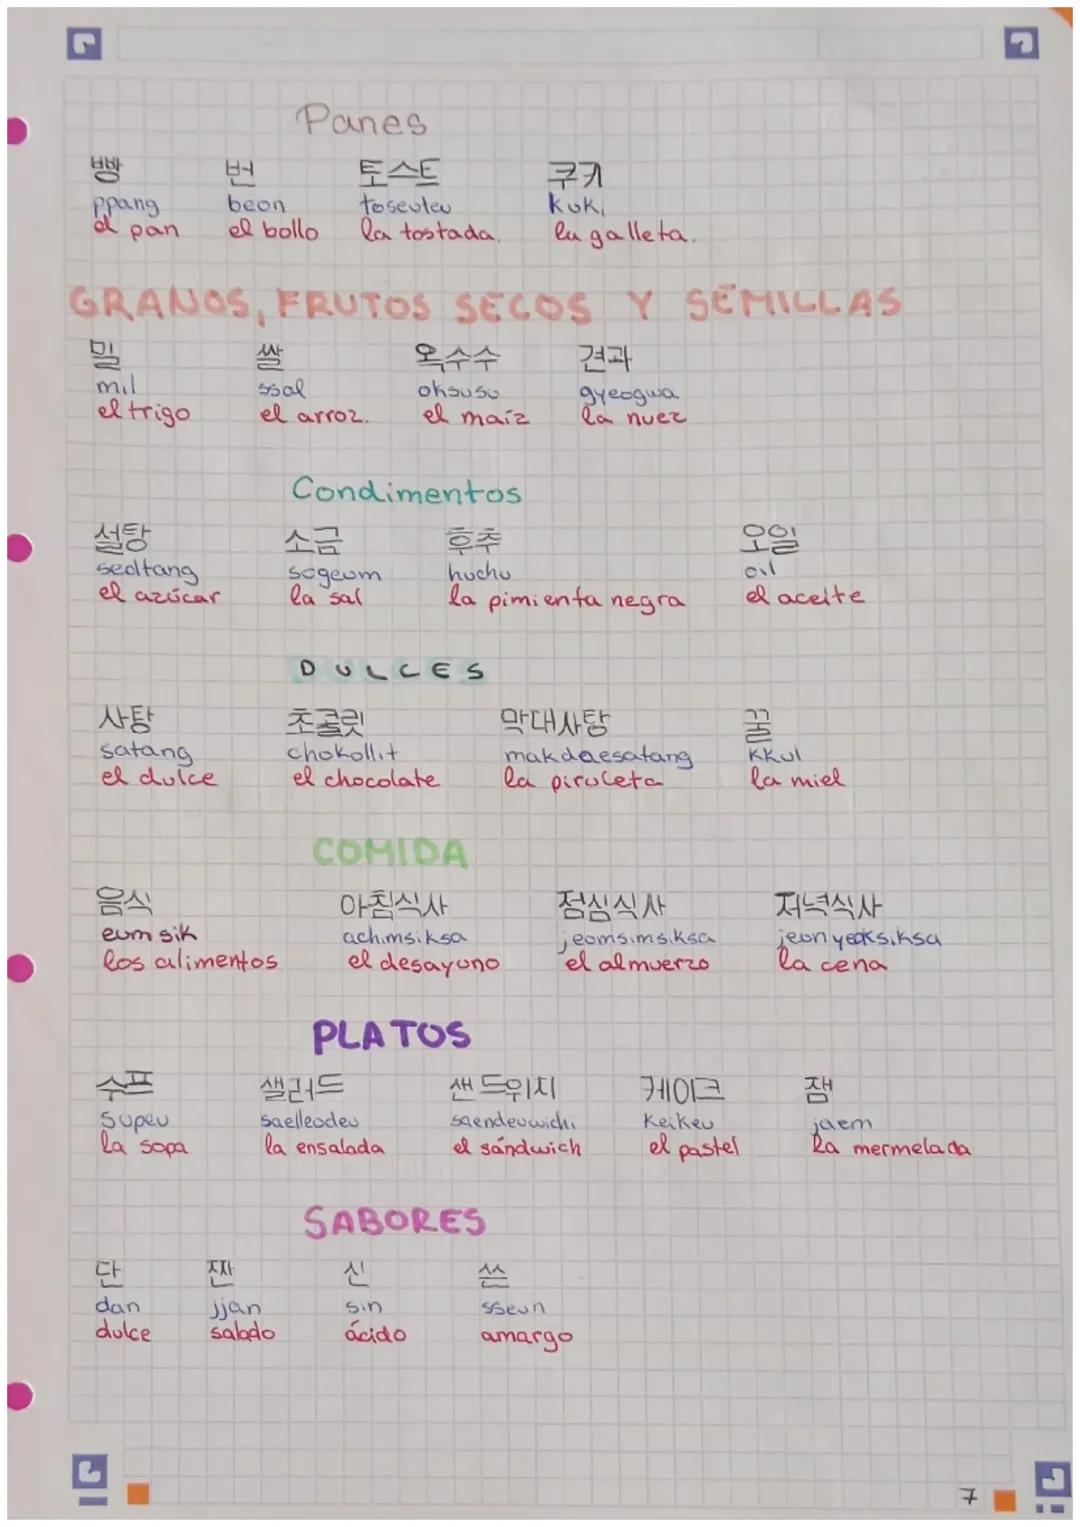 Panes
빵 번 토스트 쿠키
ppang beon toseuteu kuki
el pan el bollo la tostada. la galleta.
GRANOS, FRUTOS SECOS Y SEMILLAS
밀 쌀 옥수수 견과
mil ssal oksusu gyeogwa
el trigo el arroz. el maíz la nuez
Condimentos
설탕 소금 후추 오일
seoltang sogeum huchu oil
el azúcar la sal la pimienta negra el aceite
DULCES
사탕 초콜릿 막대사탕 꿀
satang chokollit makdaesatang kkul
el dulce el chocolate la piruleta la miel
COMIDA
음식 아침식사 점심식사 저녁식사
eumsik achimsiksa jeomsimsiksa jeonyeoksiksa
los alimentos el desayuno el almuerzo la cena
PLATOS
수프 샐러드 샌드위치 케이크 잼
supeu saelleodeu saendeuwichi keikeu jaem
la sopa la ensalada el sándwich el pastel la mermelada
SABORES
단 짠 신 쓴
dan jjan sin sseun
dulce salado ácido amargo
7